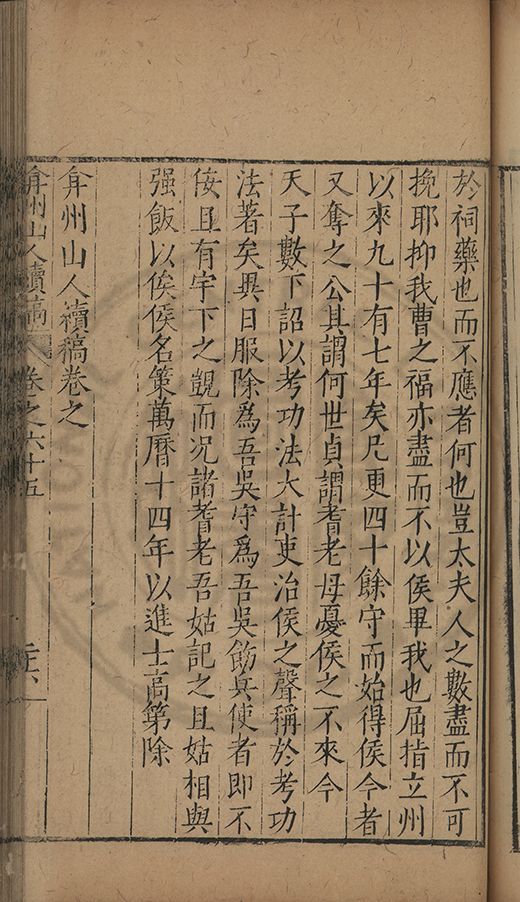 於祠藥也而不應者何也豈太夫人之數盡而不可
挽耶抑我曹之福亦盡而不以侯畢我也屈指立州
以來九十有七年矣凡更四十餘守而始得侯今者
又奪之公其謂何世貞謂耆老母憂侯之不來今
天子數下詔以考功法大計吏治侯之聲稱於考功
法著矣異日服除為吾吳守為吾吳飭兵使者即不
佞且有宇下之覬而况諸耆老吾姑記之且姑相與
强飯以俟侯名策萬曆十四年以進士高第除
弇州山人續稿卷之
弇州山人續稿 卷之六十五